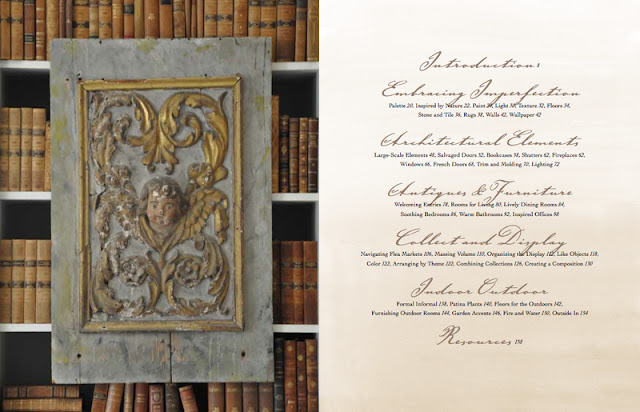 Introduction:
Embracing Imperfection
Palette 20, Inspired by Nature 22, Paint 28, Light 30, Texture 32, Floors 34,
Stone and Tile 36, Rugs 38, Walls 42, Wallpaper 42
Architectural Elements
Large-Scale Elements 48, Salvaged Doors 52, Bookcases 58, Shutters 62, Fireplaces 62,
Windows 66, French Doors 68, Trim and Molding 70, Lighting 72
Antiques & Furniture
Welcoming Entries 78, Rooms for Living 80, Lively Dining Rooms 84,
Soothing Bedrooms 86, Warm Bathrooms 92, Inspired Offices 98
Collect and Display
Navigating Flea Markets 106, Massing Volume 110, Organizing the Display 112, Like Objects 118,
Color 122, Arranging by Theme 122, Combining Collections 126, Creating a Composition 130
Indoor Outdoor
Formal Informal 138, Patina Plants 140, Floors for the Outdoors 142,
Furnishing Outdoor Rooms 144, Garden Accents 146, Fire and Water 150, Outside In 154
Resources 158